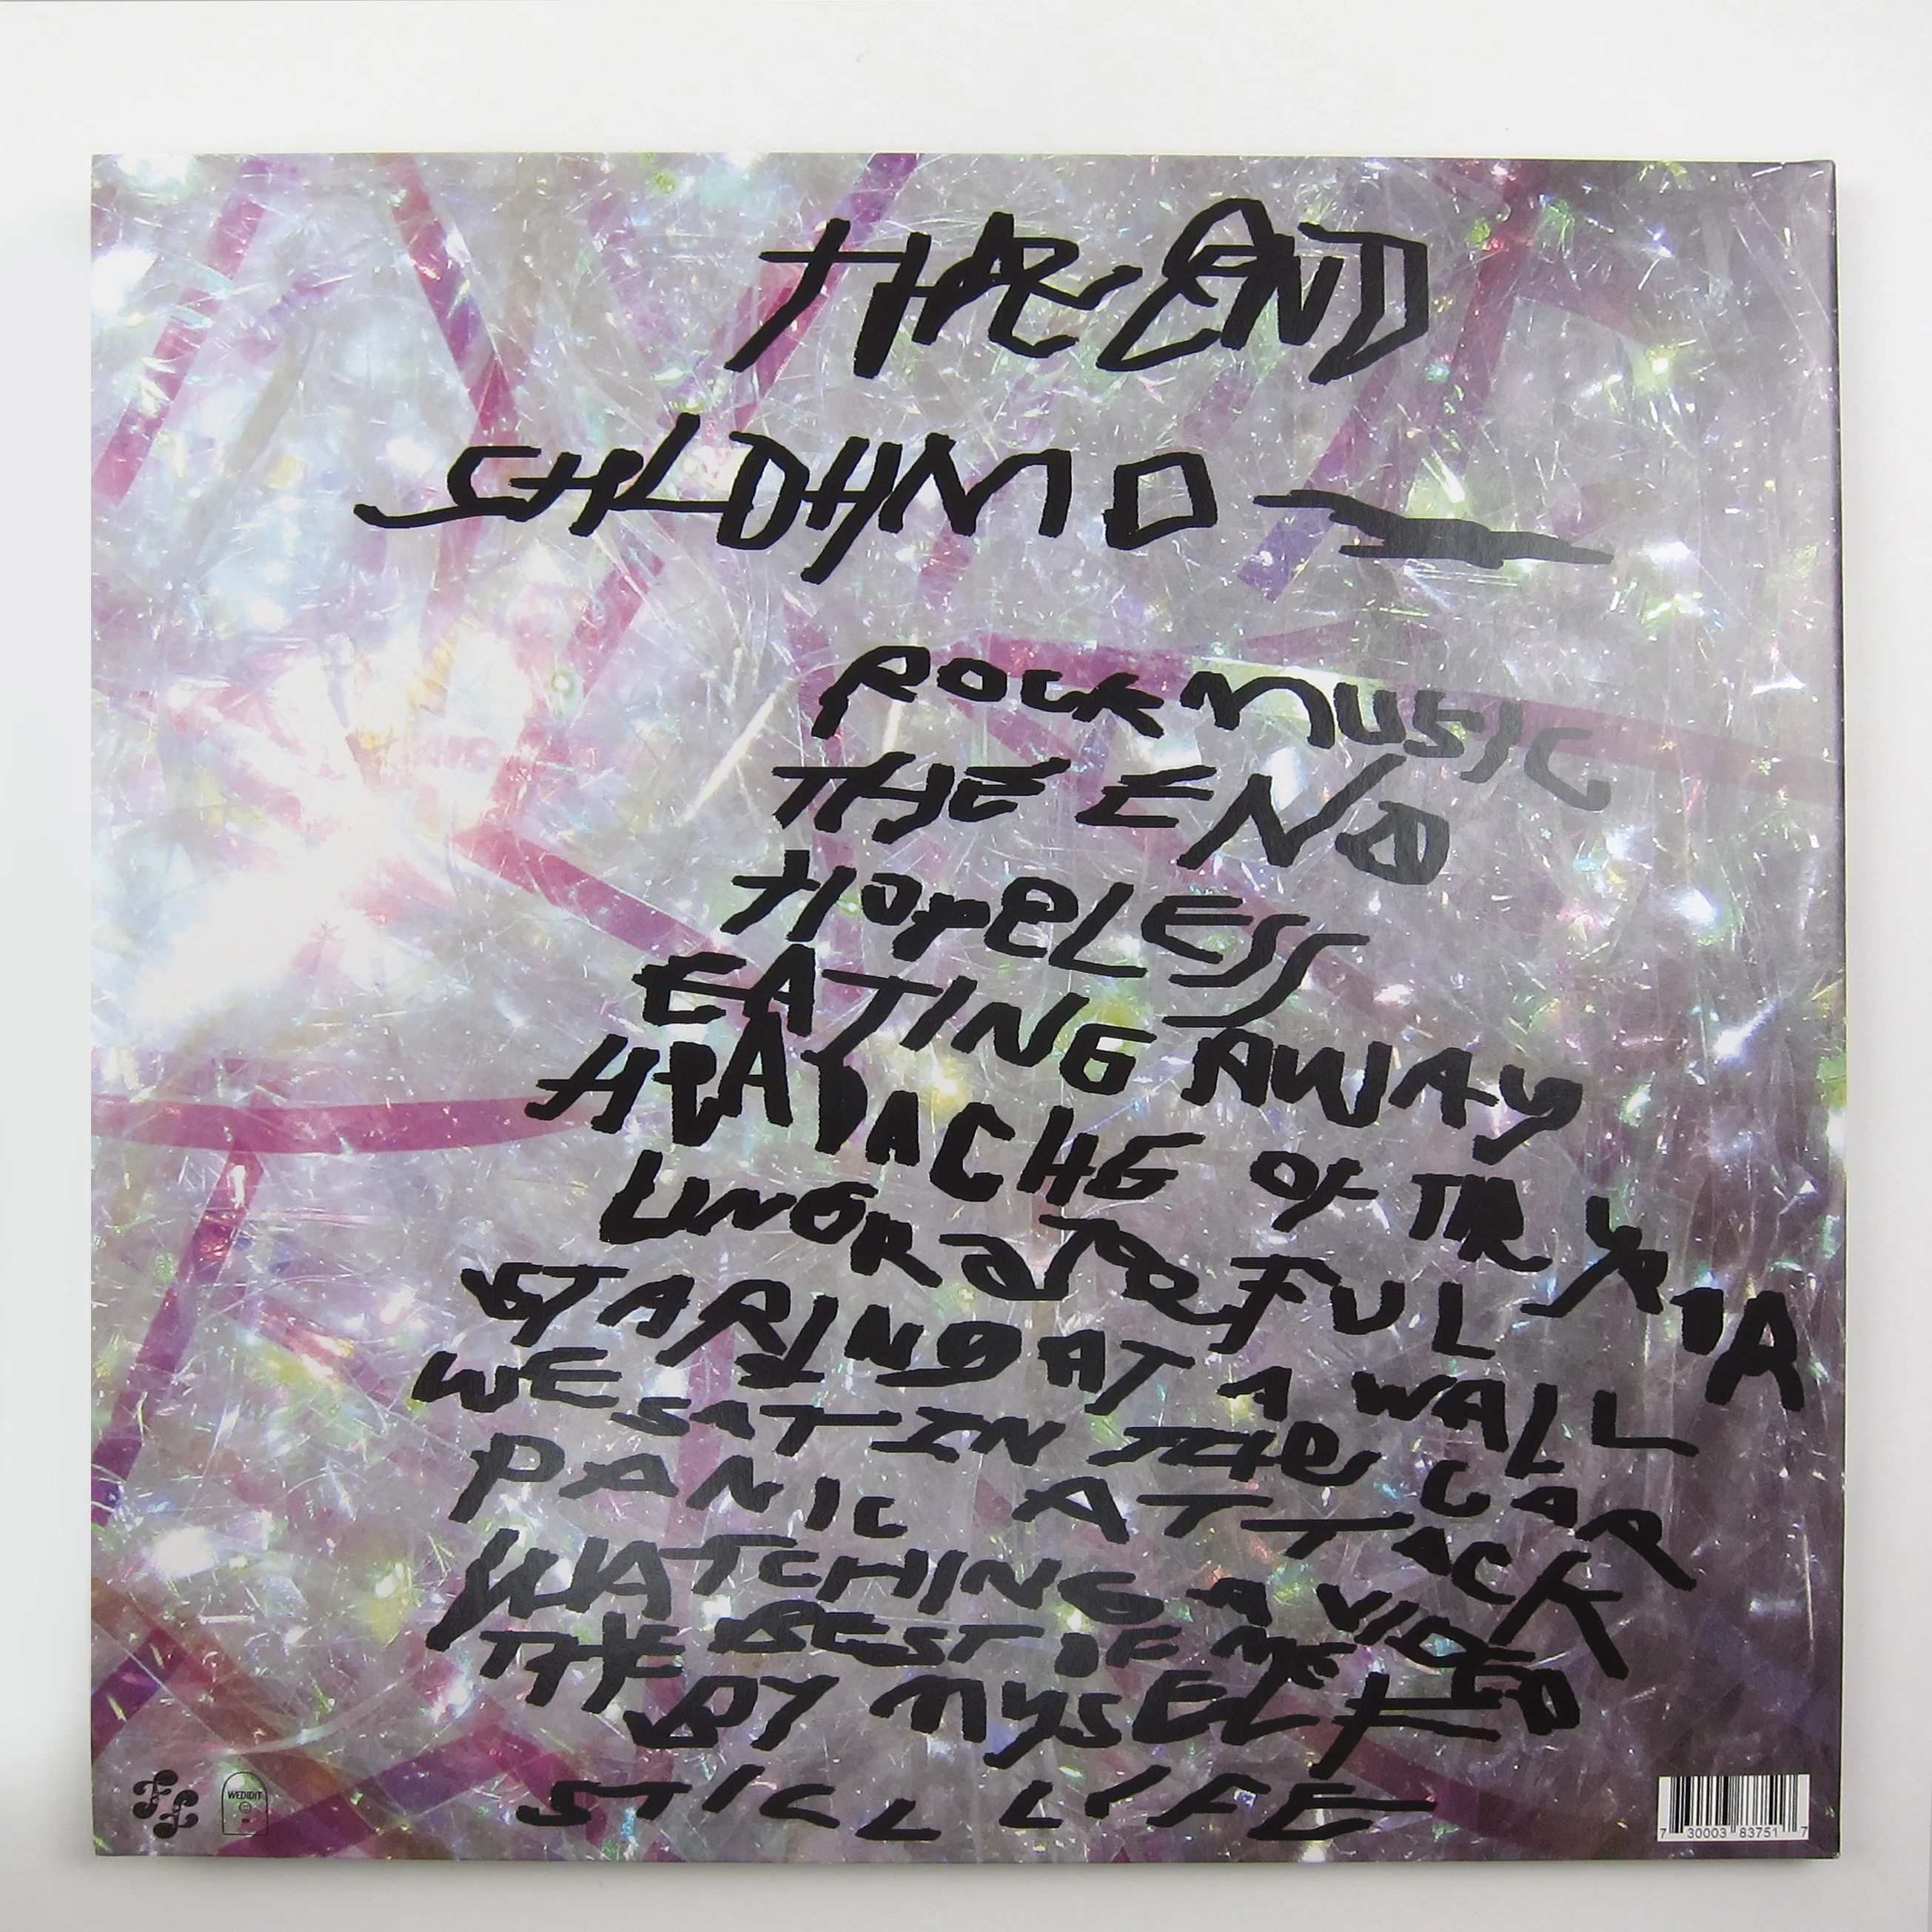 THE END
SHLOHMO
ROCK MUSIC
THE END
HOPELESS
EATING AWAY
HEADACHE OF THE YEAR
UNGRATEFUL
STARING AT A WALL
WE SAT IN THE CAR
PANIC ATTACK
WATCHING A VIDEO
THE BEST OF ME
BY MYSELF
STILL LIFE
WEDIDIT
7 30003 83751 7